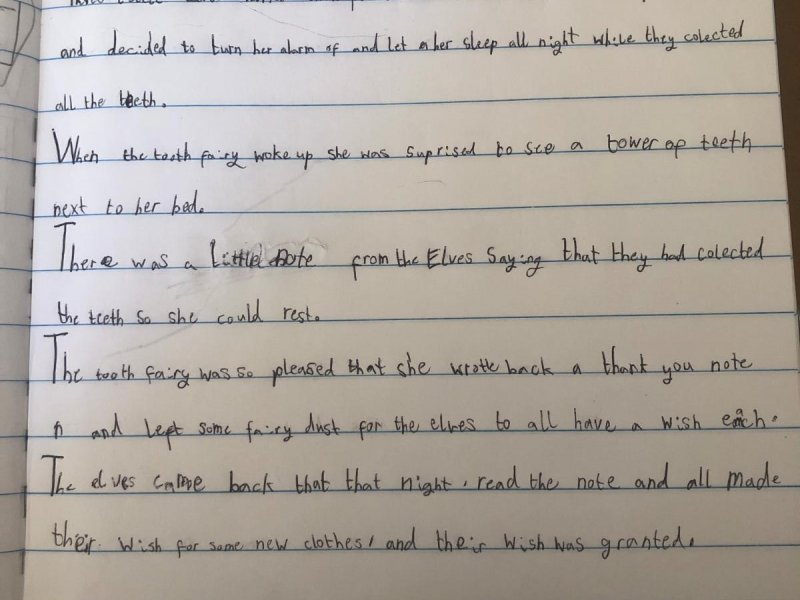 and decided to turn her alarm of and let her sleep all night while they colected
all the teeth.
When the tooth fairy woke up she was suprised to see a tower of teeth
next to her bed.
There was a little note from the Elves saying that they had colected
the teeth so she could rest.
The tooth fairy was so pleased that she wrote back a thank you note
and left some fairy dust for the elves to all have a wish each.
The elves came back that that night, read the note and all made
their wish for some new clothes, and their wish was granted.